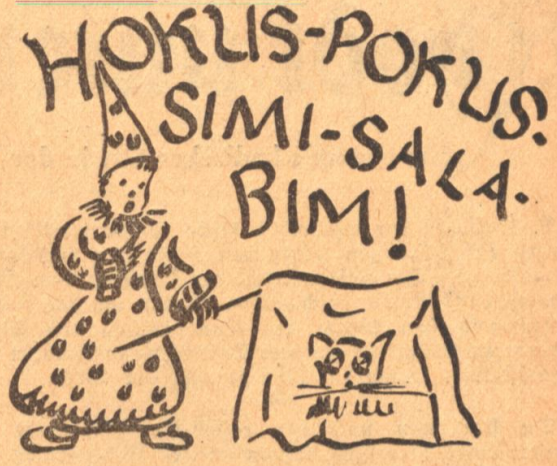 HOKUS-POKUS.
SIMI-SALA-
BIM!